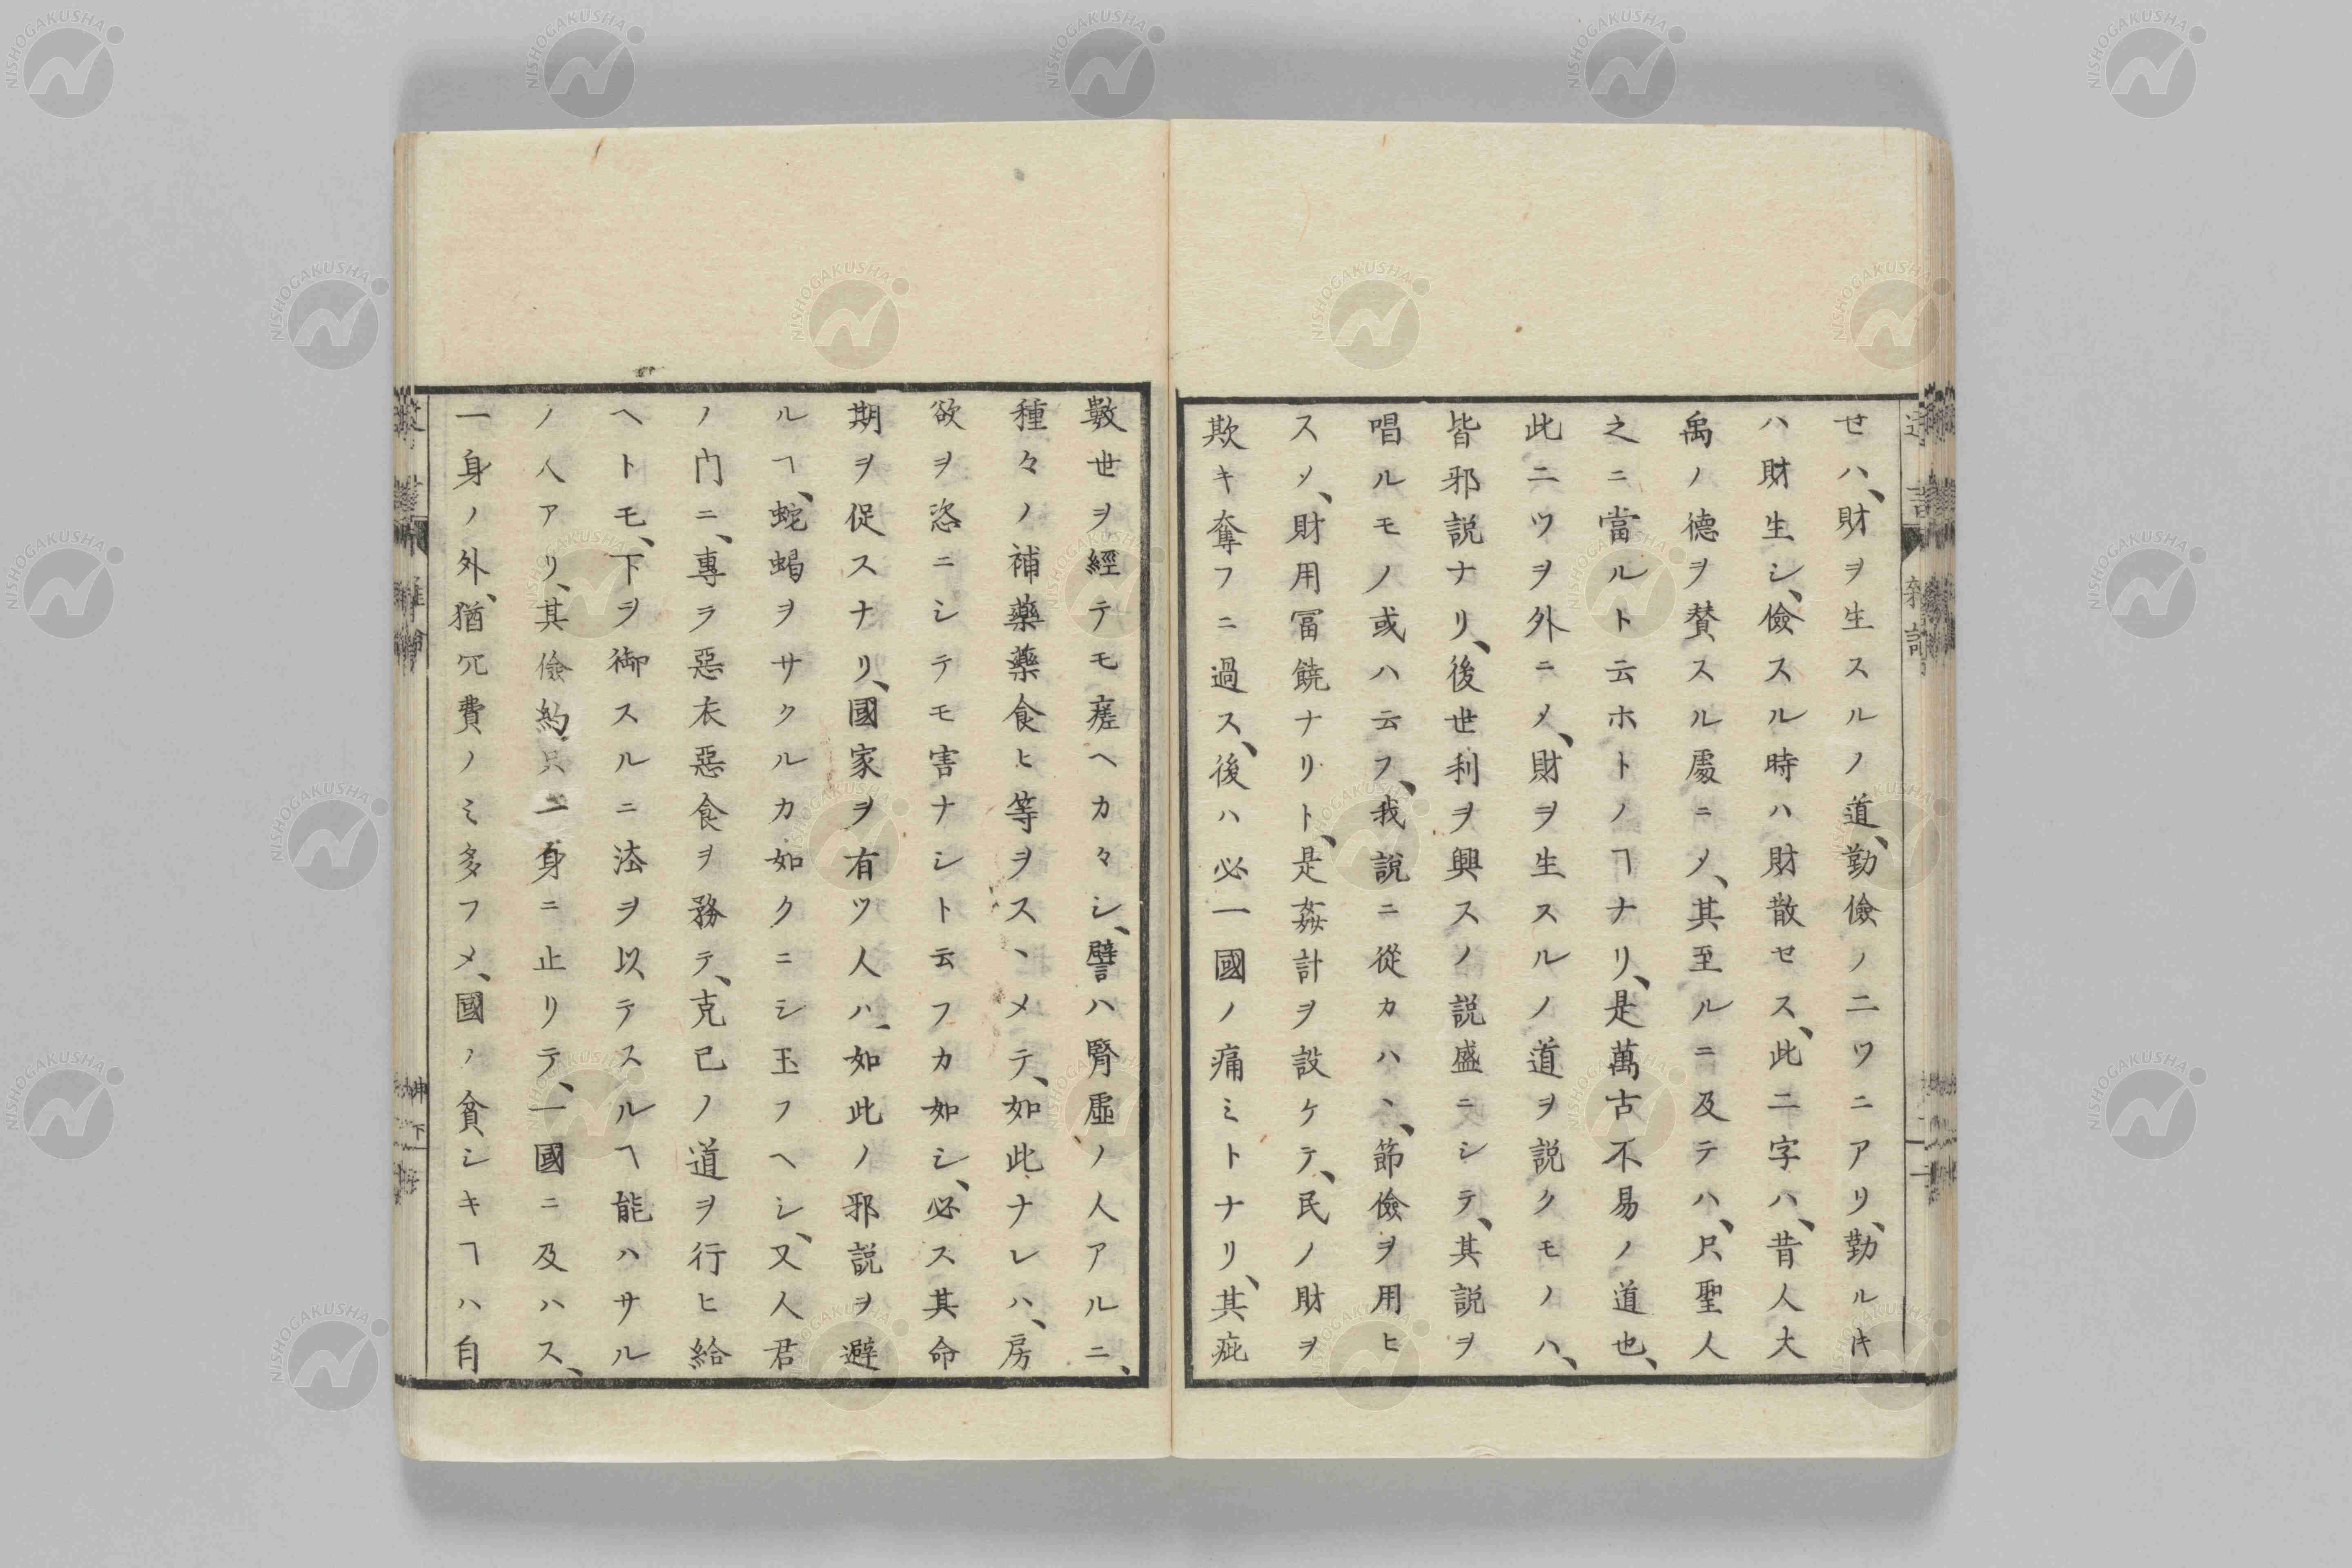 せハ、財ヲ生スルノ道、勤儉ノ二ツニアリ、勤ルキ
ハ財生シ、儉スル時ハ財散セス、此二字ハ、昔人大
禹ノ德ヲ賛スル處ニメ、其至ルニ及テハ、只聖人
之ニ當ルト云ホトノヿナリ、是萬古不易ノ道也、
此二ツヲ外ニメ、財ヲ生スルノ道ヲ説クモノハ、
皆邪説ナリ、後世利ヲ興スノ説盛ニシテ、其説ヲ
唱ルモノ或ハ云フ、我説ニ從カハヽ、節儉ヲ用ヒ
スメ、財用冨饒ナリト、是姦計ヲ設ケテ、民ノ財ヲ
欺キ奪フニ過ス、後ハ必一國ノ痛ミトナリ、其疵
數世ヲ經テモ瘥ヘカ々シ、譬ハ腎虛ノ人アルニ、
種々ノ補藥藥食ヒ等ヲスヽメテ、如此ナレハ、房
欲ヲ恣ニシテモ害ナシト云フカ如シ、必ス其命
期ヲ促スナリ、國家ヲ有ツ人ハ、如此ノ邪説ヲ避
ルヿ、蛇蝎ヲサクルカ如クニシ玉フヘシ、又人君
ノ门ニ、專ラ惡衣惡食ヲ務テ、克己ノ道ヲ行ヒ給
ヘトモ、下ヲ御スルニ法ヲ以テスルヿ能ハサル
ノ人アリ、其儉約只一身ニ止リテ、一國ニ及ハス、
一身ノ外、猶冗費ノミ多フメ、國ノ貧シキヿハ自
NISHOGAKUSHA